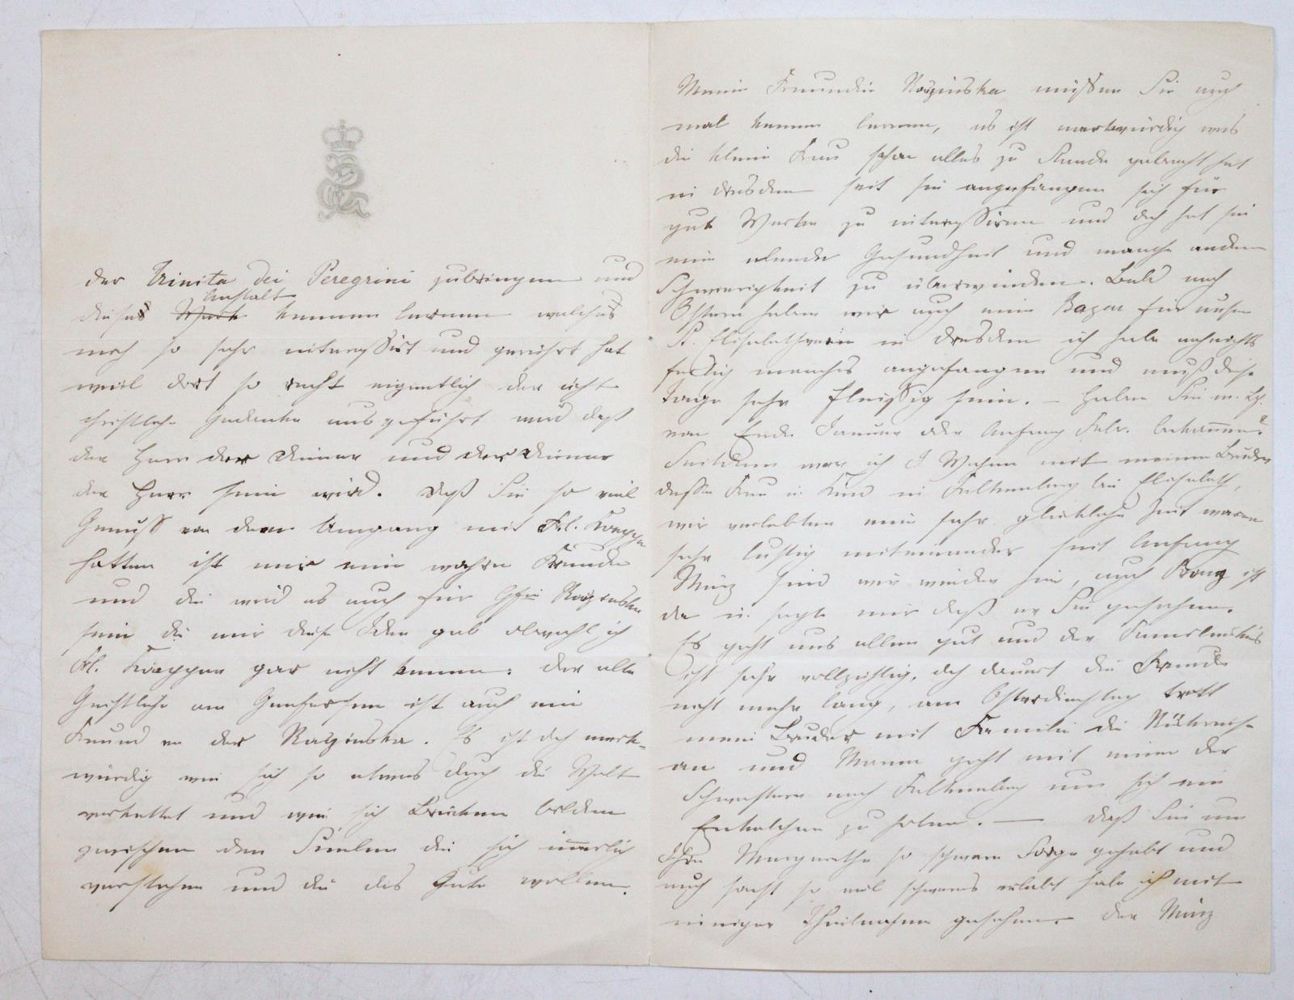 der Trinita dei Peregrini zubringen und
dieses Anstalt
Werk kennen lernen welches
mich so sehr interessirt und gerührt hat
weil dort so recht eigentlich der ächt
christliche Gedanke ausgeführt wird daß
der Herr der Diener und der Diener
der Herr sein wird. Daß Sie so viel
Genuss von dem Umgang mit Frl.
hatten ist mir eine wahre Freude
und die wird es auch für
sein die mir diese Idee gab obwohl ich
Frl. gar nicht kenne; der alte
Geistliche am ist auch ein
Freund von der Razinska. Es ist doch merk-
würdig wie sich so etwas durch die Welt
verkettet und wie sich Brücken bilden
zwischen den Seelen die sich innerlich
verstehen und die das Gute wollen.
Meine Freundin Razinska müssen Sie auch
mal kennen lernen, es ist merkwürdig was
die kleine Frau schon alles zu Stande gebracht hat
in Dresden seit sie angefangen sich für
gute Werke zu interessiren und doch hat sie
eine elende Gesundheit und manche andere
Schwierigkeit zu überwinden. Bald nach
Ostern haben wir auch einen Bazar für unsern
St. Elisabethverein in Dresden ich habe
fertig manches angefangen und muß diese
Tage sehr fleissig sein. — Haben Sie m. Br.
von Ende Januar oder Anfang Febr. bekommen?
Seitdem war ich Wochen mit meinem Bruder
dessen Frau u. Kind in bei Elisabeth,
wir verlebten eine sehr glückliche Zeit waren
sehr lustig miteinander seit Anfang
März sind wir wieder hier, auch ist
da u. sagte mir daß er Sie gesehen.
Es geht uns allen gut und der Familienkreis
ist sehr vollzählig, doch dauert die Freude
nicht mehr lang, am Osterdienstag tritt
mein Bruder mit Familie die Rückreise
an und Mama geht mit einer der
Schwestern nach um sich ein
Enkelchen zu holen. — Daß Sie um
Ihre Margarethe so schwere Sorge gehabt und
auch sonst so viel schweres erlebt habe ich mit
inniger Theilnahme gesehen. Der März